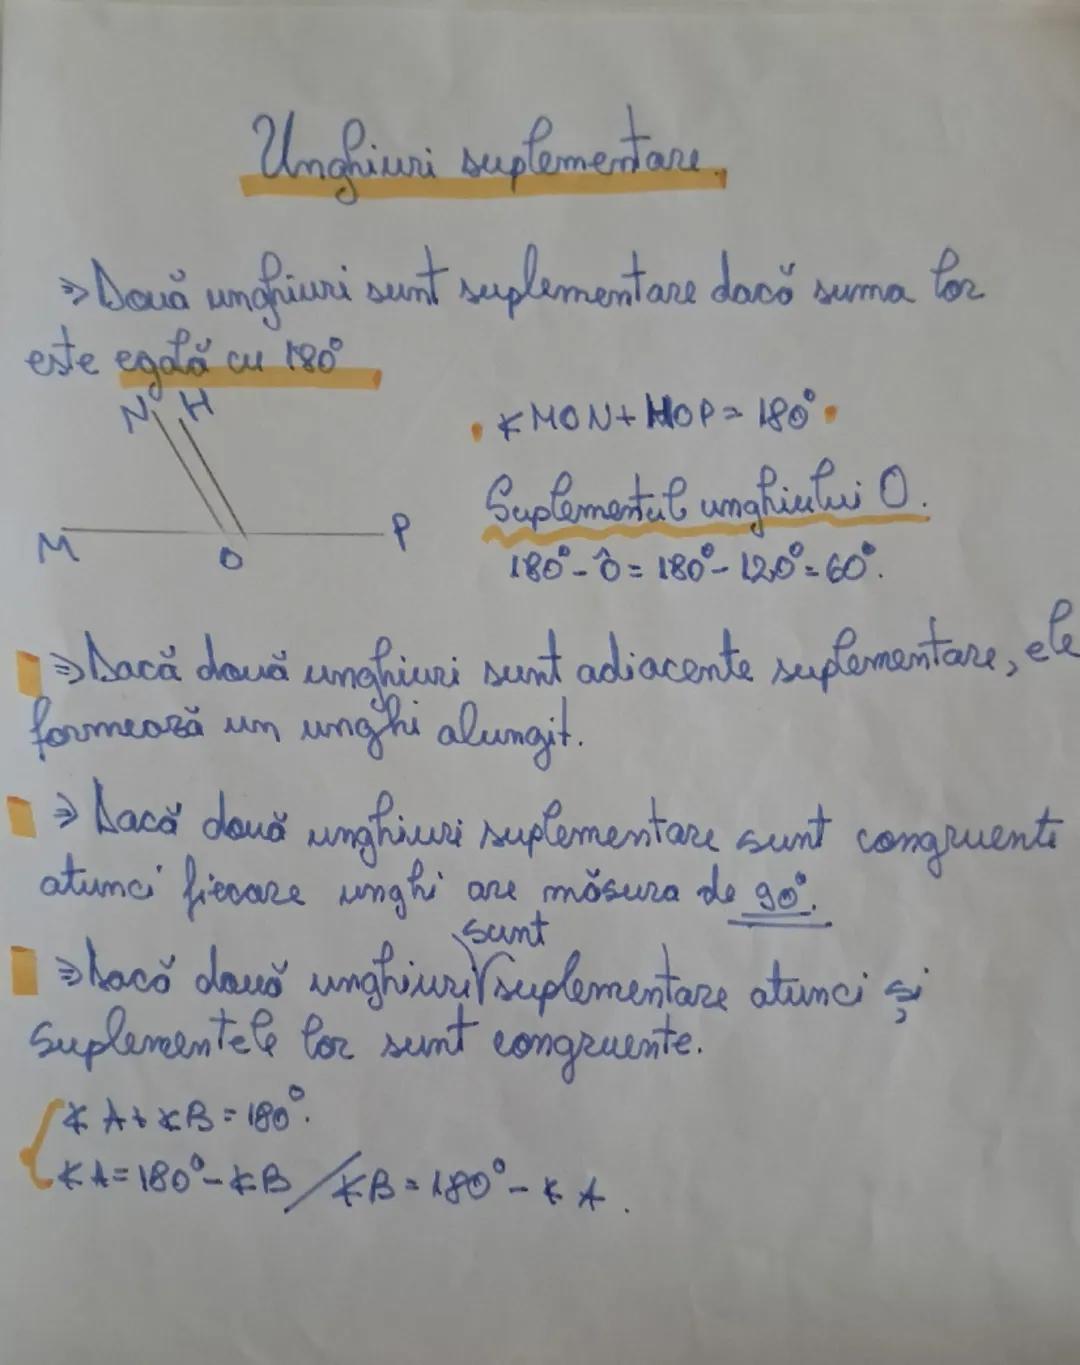 Unghiuri suplementare.
=> Două unghiuri sunt suplementare dacă suma lor
este egală cu 180°
N H
∢MON+HOP=180°
M O P
Suplementul unghiului O.
180°-Ô=180°-120°=60°.
=> Dacă două unghiuri sunt adiacente suplementare, ele
formează un unghi alungit.
=> Dacă două unghiuri suplementare sunt congruente
atunci fiecare unghi are măsura de 90°.
sunt
=> Dacă două unghiuri suplementare atunci și
suplementele lor sunt congruente.
∢A+∢B=180°.
∢A=180°-∢B / ∢B=180°-∢A.